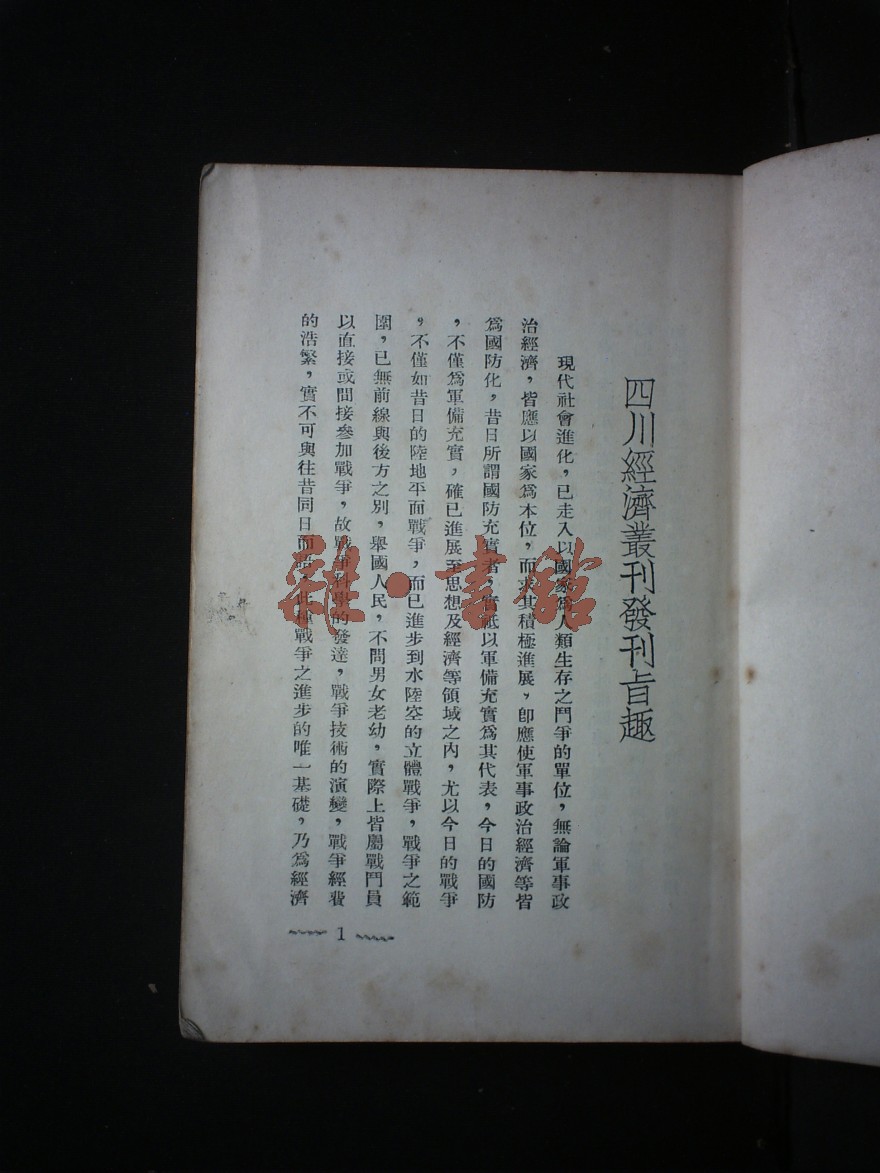 四川經濟叢刊發刊旨趣
現代社會進化，已走入以國家為人類生存之鬥爭的單位，無論軍事政
治經濟，皆應以國家爲本位，而求其積極進展，卽應使軍事政治經濟等皆
爲國防化，昔日所謂國防充實者，實祇以軍備充實爲其代表，今日的國防
，不僅爲軍備充實，確已進展至思想及經濟等領域之內，尤以今日的戰爭
，不僅如昔日的陸地平面戰爭，而已進步到水陸空的立體戰爭，戰爭之範
圍，已無前線與後方之別，舉國人民，不問男女老幼，實際上皆屬戰鬥員
以直接或間接參加戰爭，故戰爭科學的發達，戰爭技術的演變，戰爭經費
的浩繁，實不可與往昔同日而語，此種戰爭之進步的唯一基礎，乃爲經濟
1
雜·書館